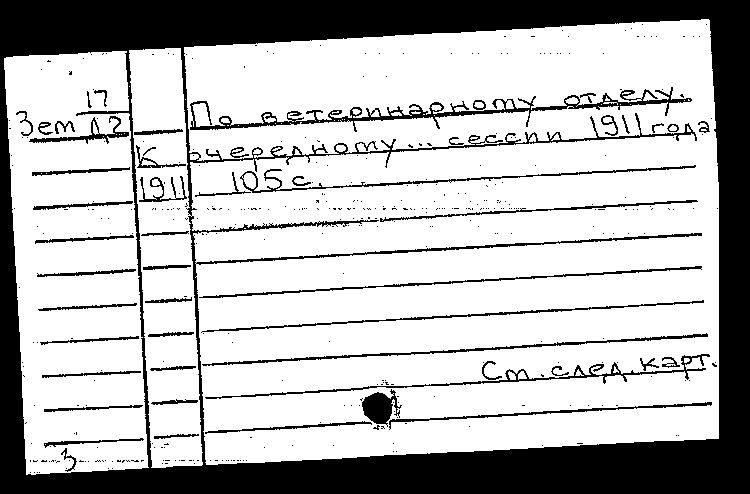 17
Зем Д2 По ветеринарному отделу.
К очередному... сессии 1911 года.
1911 105 с.
Ст. след. карт.
3